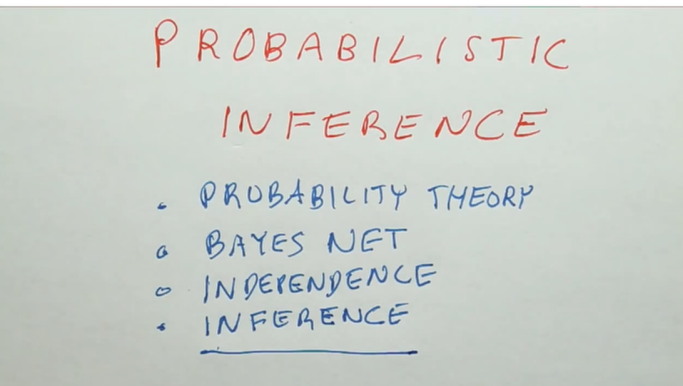 PROBABILISTIC
INFERENCE
• PROBABILITY THEORY
• BAYES NET
• INDEPENDENCE
• INFERENCE